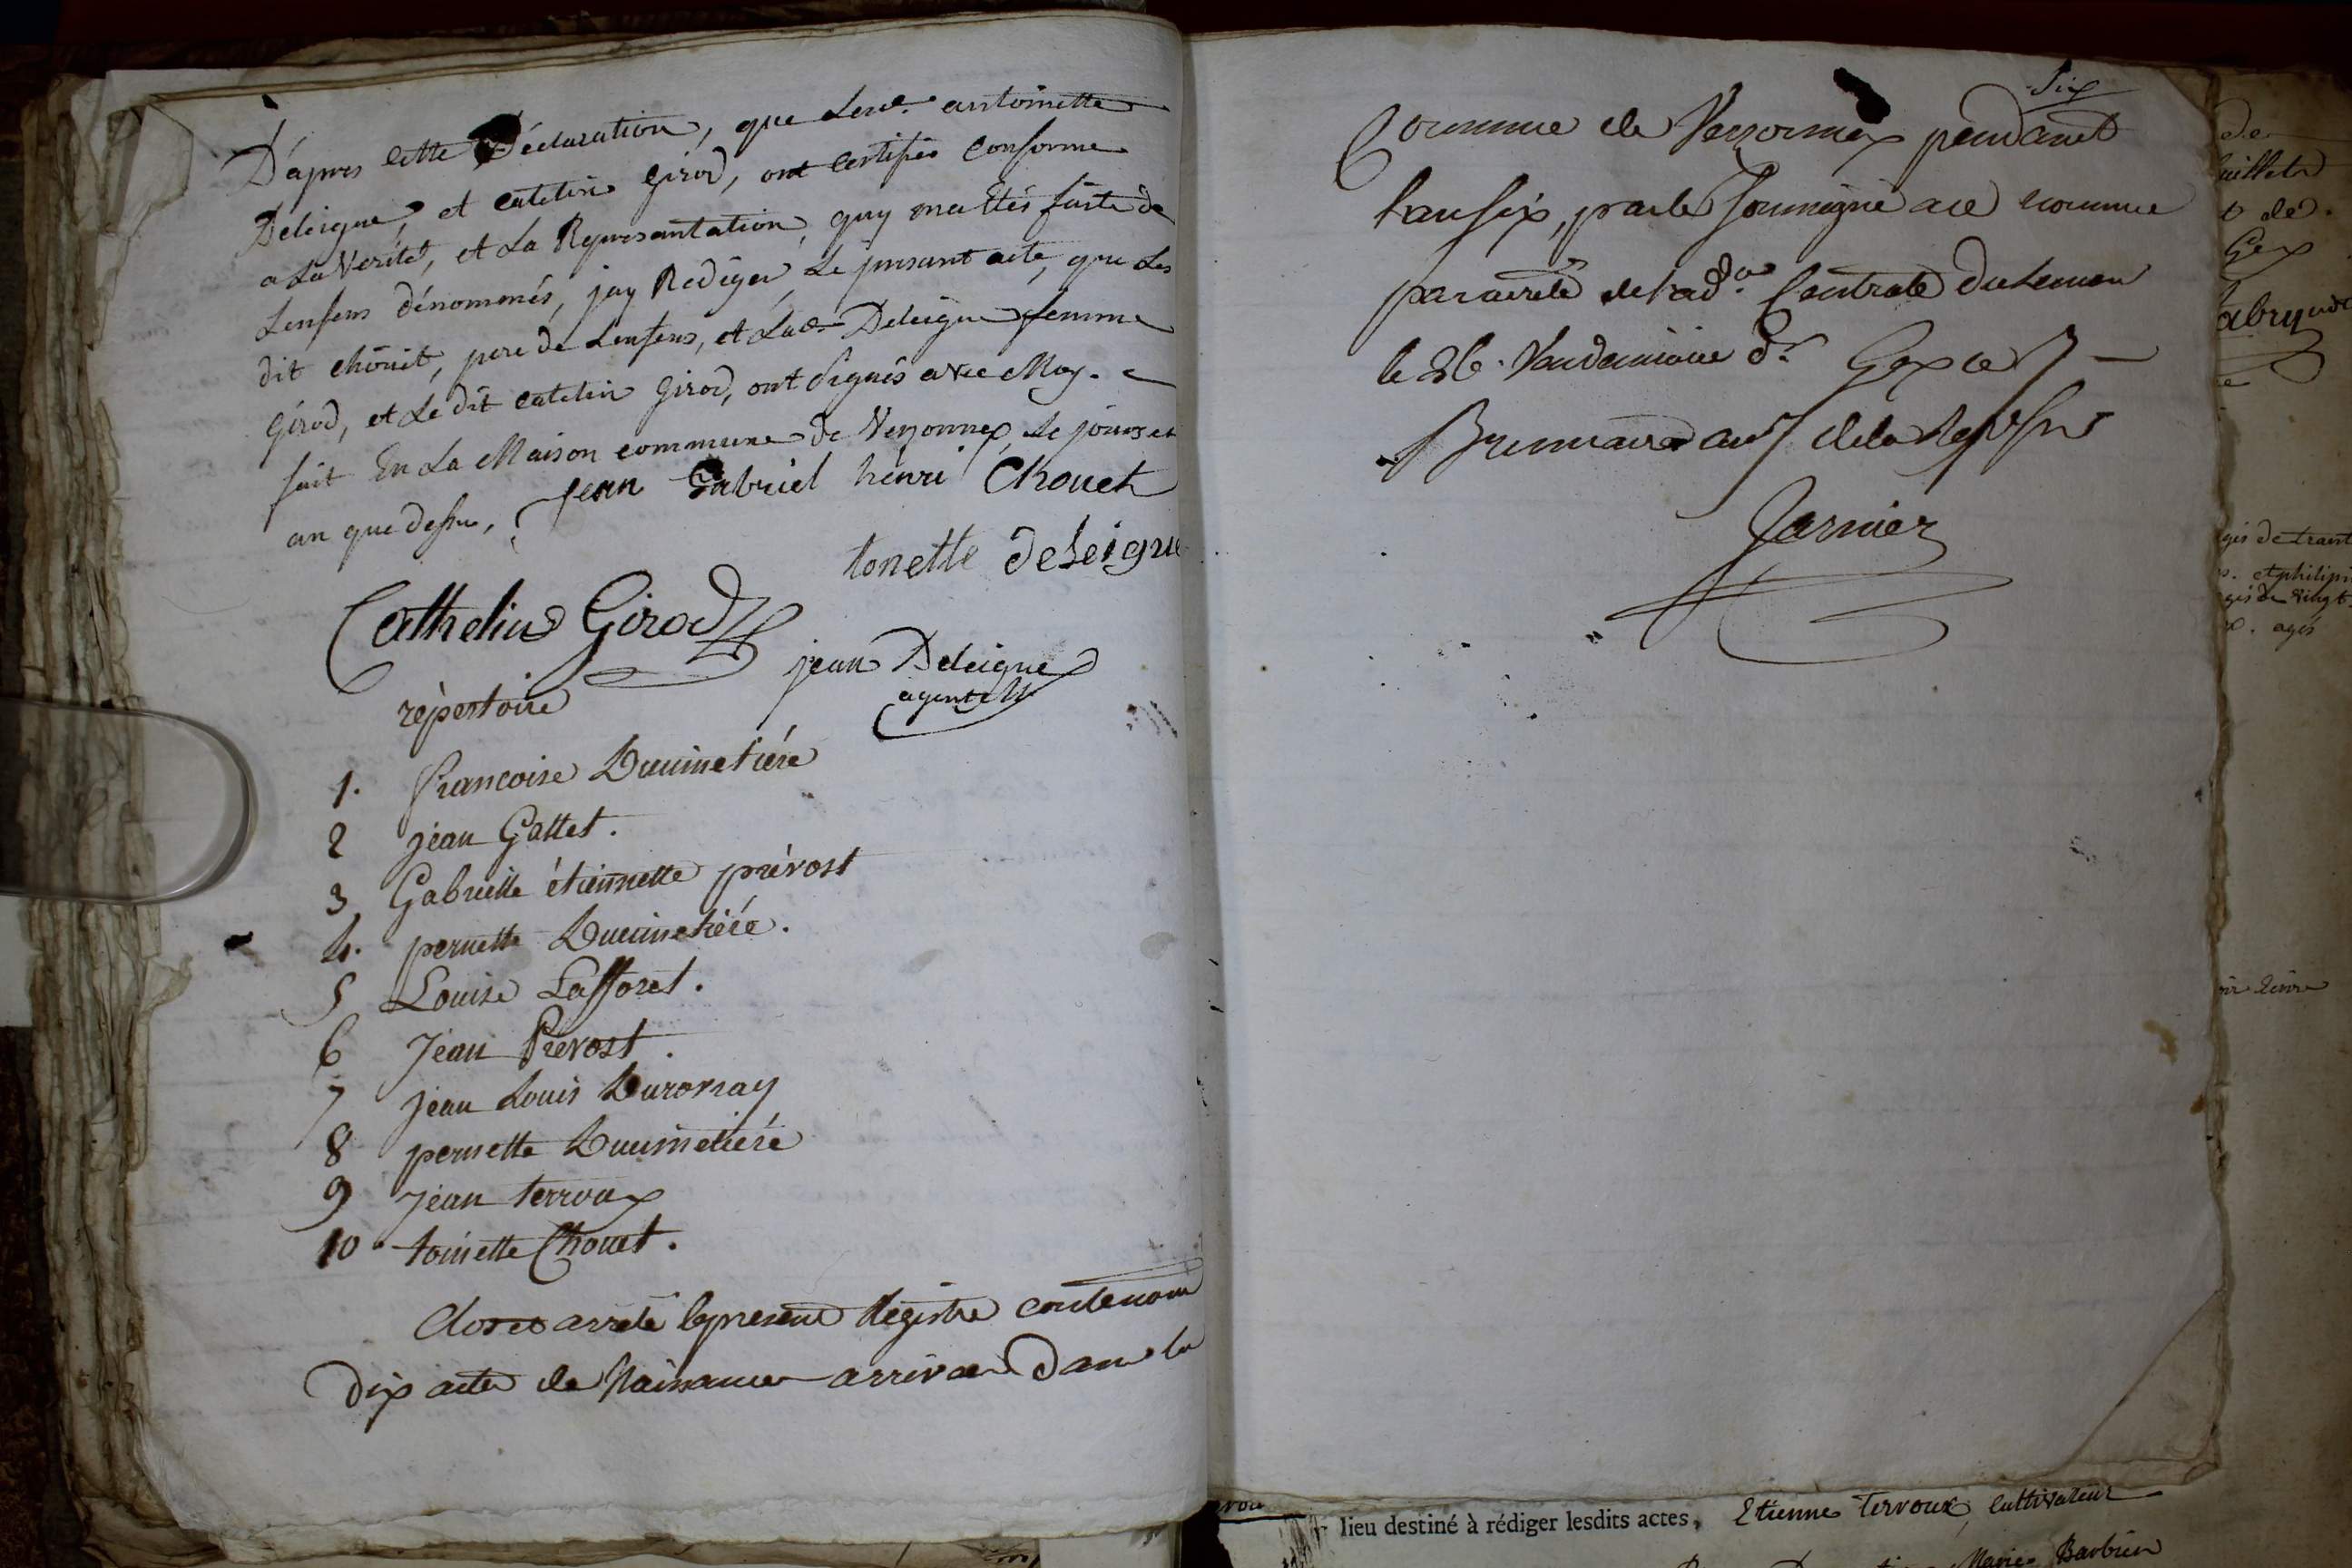 D'apres cette Déclaration, que Les c.es antoinette
Deleigue, et catelin Girod, ont certifiés conforme
a La Verité, et La Représantation, quy ma Etés faite de
Lenfens dénommés, jay Rediger, Le presant acte, que Les
dit Choüet, pere de Lenfens, et La c.e Deleigue femme
Girod, et Le dit catelin Girod, ont signés avec Moy.
fait En La Maison commune de Versonnex, Le jours et
an que dessu,
jean Gabriel henri Chouet
tonette deleigue
Cathelin Girod
jean Deleigue
agent
rèpertoire
1. francoise Ducimetiére
2 jean Gattet.
3 Gabrielle étiennette prévost
4. pernette Ducimetiére.
5 Louise Lafforet.
6 Jean Prevost.
7 jean Louis Durovray
8 pernette Ducimetiére
9 jean terroux
10 toinette Chouet.
Clos et arreté le present Registre contenant
Dix actes de Naissances arrivée dans la
Six
Commune de Versonnex pendant
lan six, par le Soussigné a ce nommé
par arreté de l'ad.on Centrale du Leman
le 26. Vendemiaire d.r Gex ce 7
Brumaire an 7 de la Rep.
Garnier
de
uillet
t de
Gex
abry
agés de trant
et philip
gés de vingt
agés
lieu destiné à rédiger lesdits actes, Etienne Terroux, cultivateur
Marie Barbier